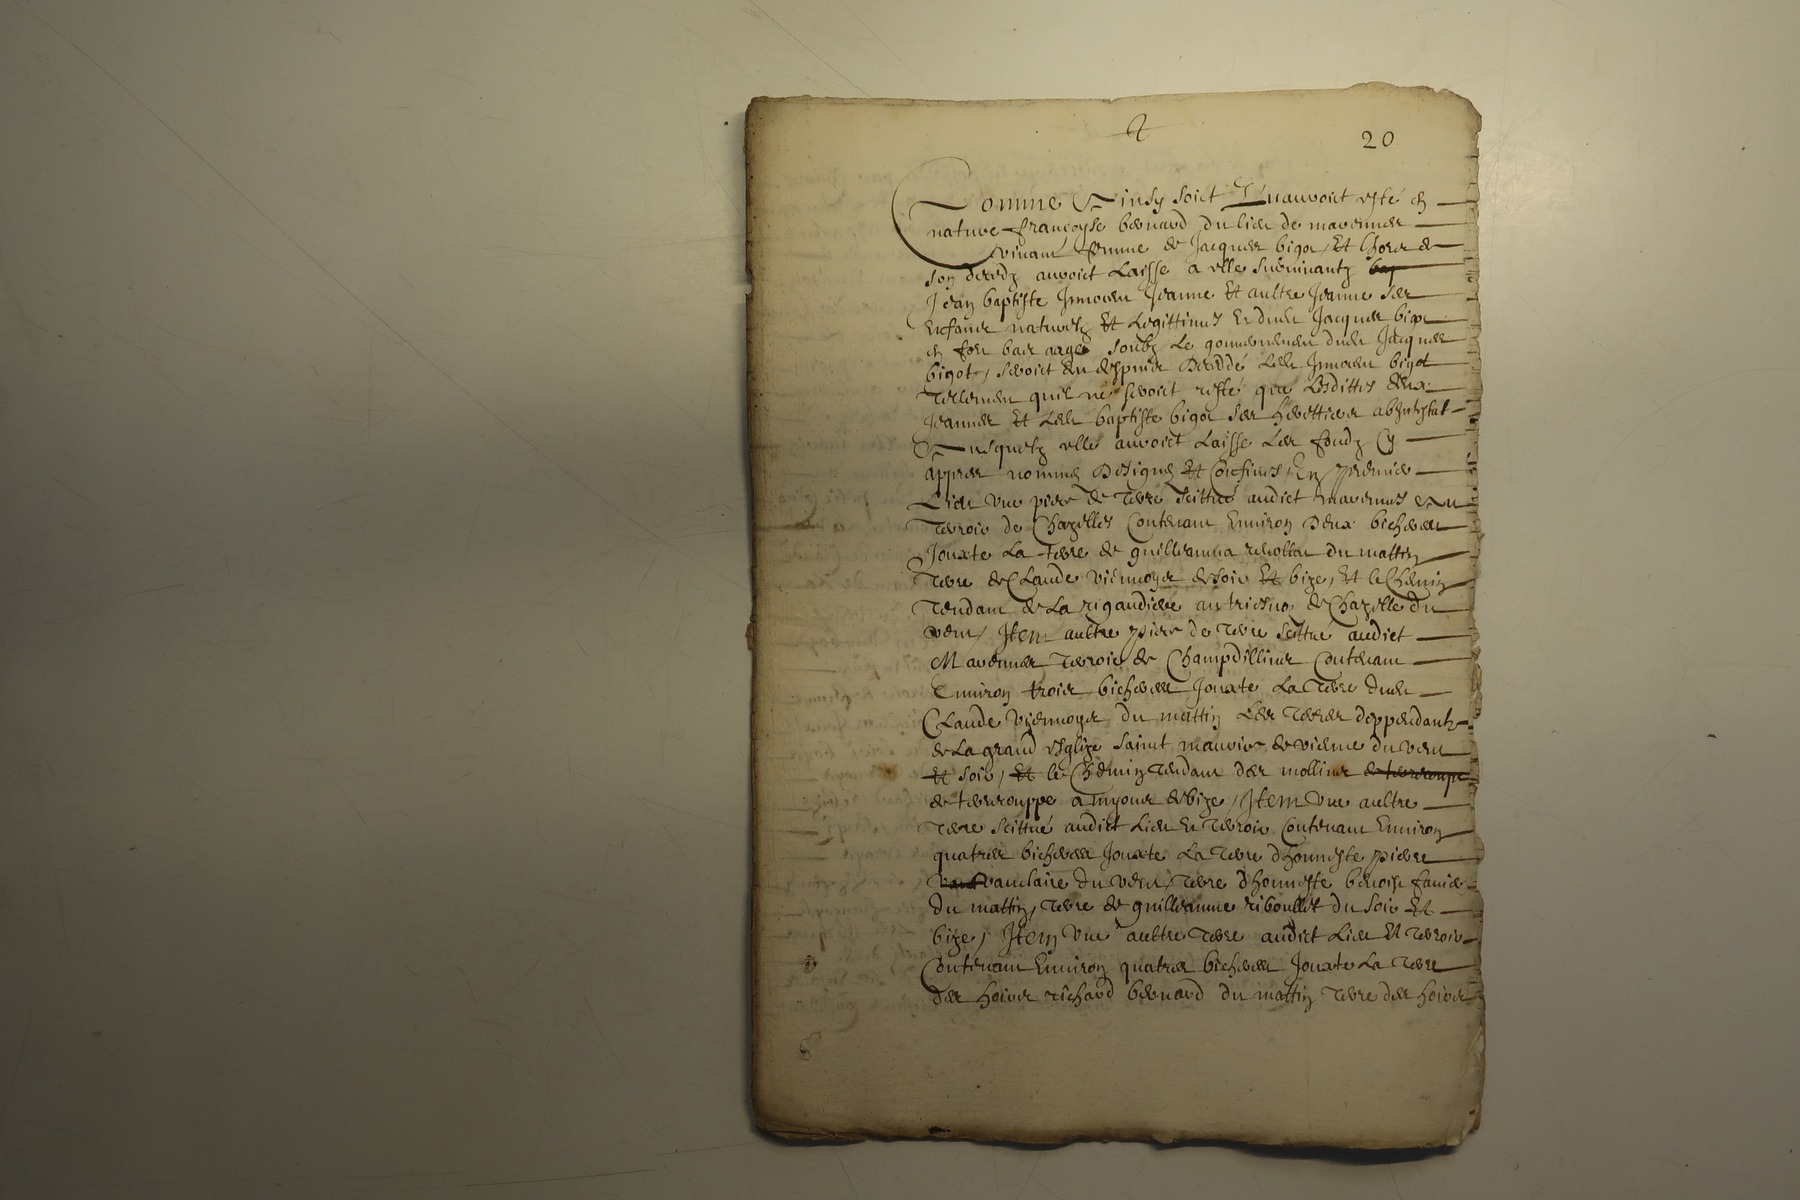 20
Comme Ainsy soict Qu'auroict esté en
nature françoyse bernard du lieu de marennes
vivant femme de Jacques bigot, Et lhors de
son deredz auroict Laisse a elle survivantz
Jean baptiste Jnnocen Jeanne Et aultre Jeanne ses
Enfans naturelz Et Legittimes Et dudt Jacques bigot
en fort bas aage soubz Le gouvernemen dudt Jacques
bigot, seroict du despuis Deceddé Ledt Jnnocen bigot
Tellemen quil ne seroict resté que Lesdittes deux
Jeannes Et Ledt baptiste bigot ses herittiers abzintestat
Ausquelz elle auroict Laisse Les fondz Cy
appres nommes Designes Et Confines, En premier
Lieu Une piece de Terre scittué audict marennes Et au
Terroir de Chazelles Contenant Environ Deux bicherees
Jouxte La terre de du mattin
Terre de Claude Viennoys de soir Et bize, Et le Chemin
Tendant de La rigaudiere au de Chazelle du
vent, Jtem aultre piece de Terre scittué audict
Marennes Terroir de Champdillines Contenant
Environ trois bicherees Jouxte La Terre dudt
Claude Viennoys du mattin Les Terres deppendantz
de La grand Esglize Saint maurice de vienne du vent
Et soir, Et le Chemin Tendant des mollines de terreroupe
de terrerouppe a myons de bize, Jtem Une aultre
Terre scittué audict Lieu Et Terroir Contenant Environ
quatres bicherees Jouxte La Terre dhonneste pierre
vauclaire du vent, Terre dhonneste benoist
du mattin, Terre de guilleaume riboullet du soir Et
bize, Jtem Une aultre Terre audict Lieu Et Terroir
Contenant Environ quatres bicherees Jouxte La Terre
des hoirs richard bernard du mattin Terre des hoirs